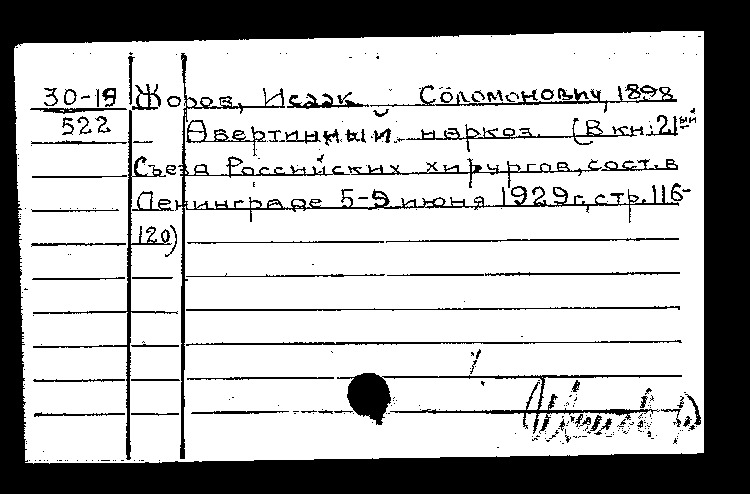 30-19 Жоров, Исаак Соломонович, 1898
522 Авертинный наркоз. (В кн: 21ый
Съезд Российских хирургов, сост. в
Ленинграде 5-9 июня 1929 г., стр. 116-
120)